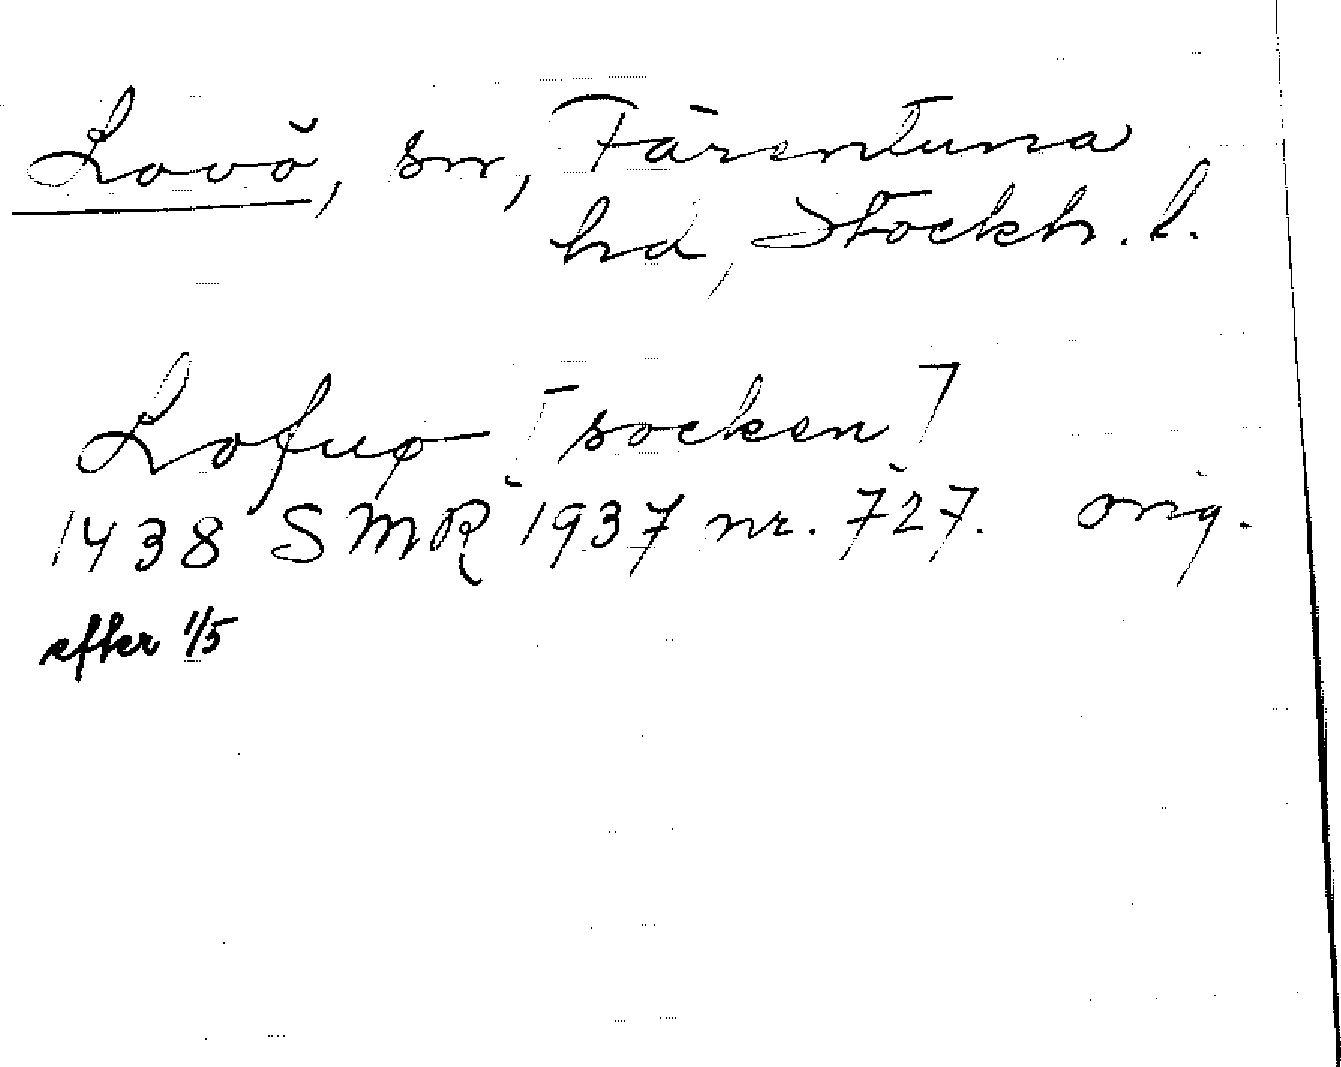 Lovö, sn, Färentuna
hd, Stockh. l.
Lofuø [socken]
1438 SMR 1937 nr. 727. orig.
efter 1/5